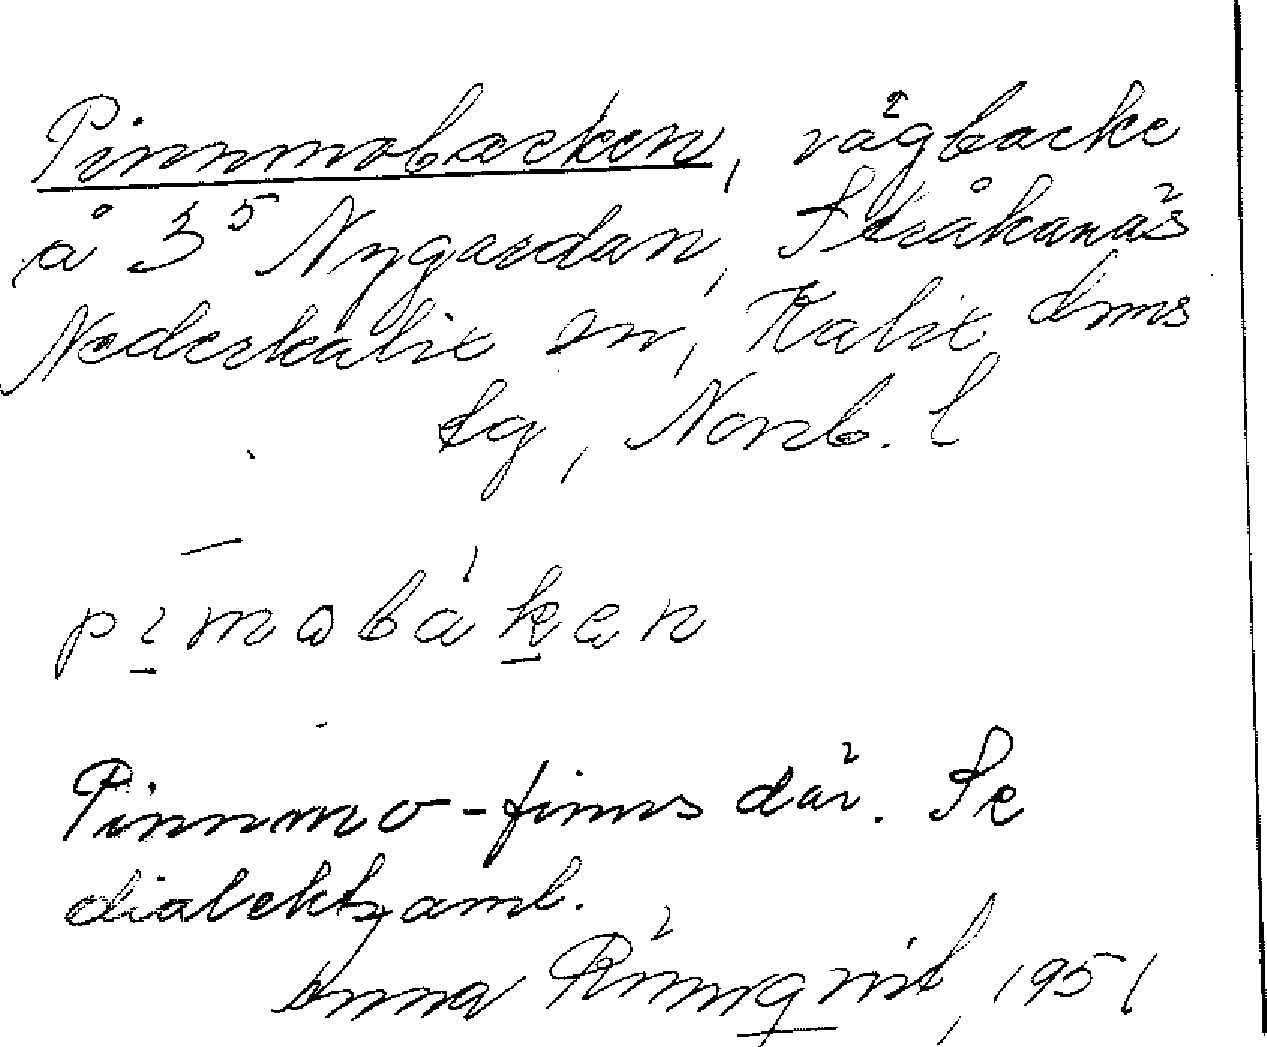 Pinnmobacken, vägbacke
å 3⁵ Nygårdan, Stråkanäs
Nederkalix sn, Kalix dms
tg, Norrb. l
pịmobáken
Pinnmo - finns där. Se
dialektsaml.
Anna Rönnqvist, 1951